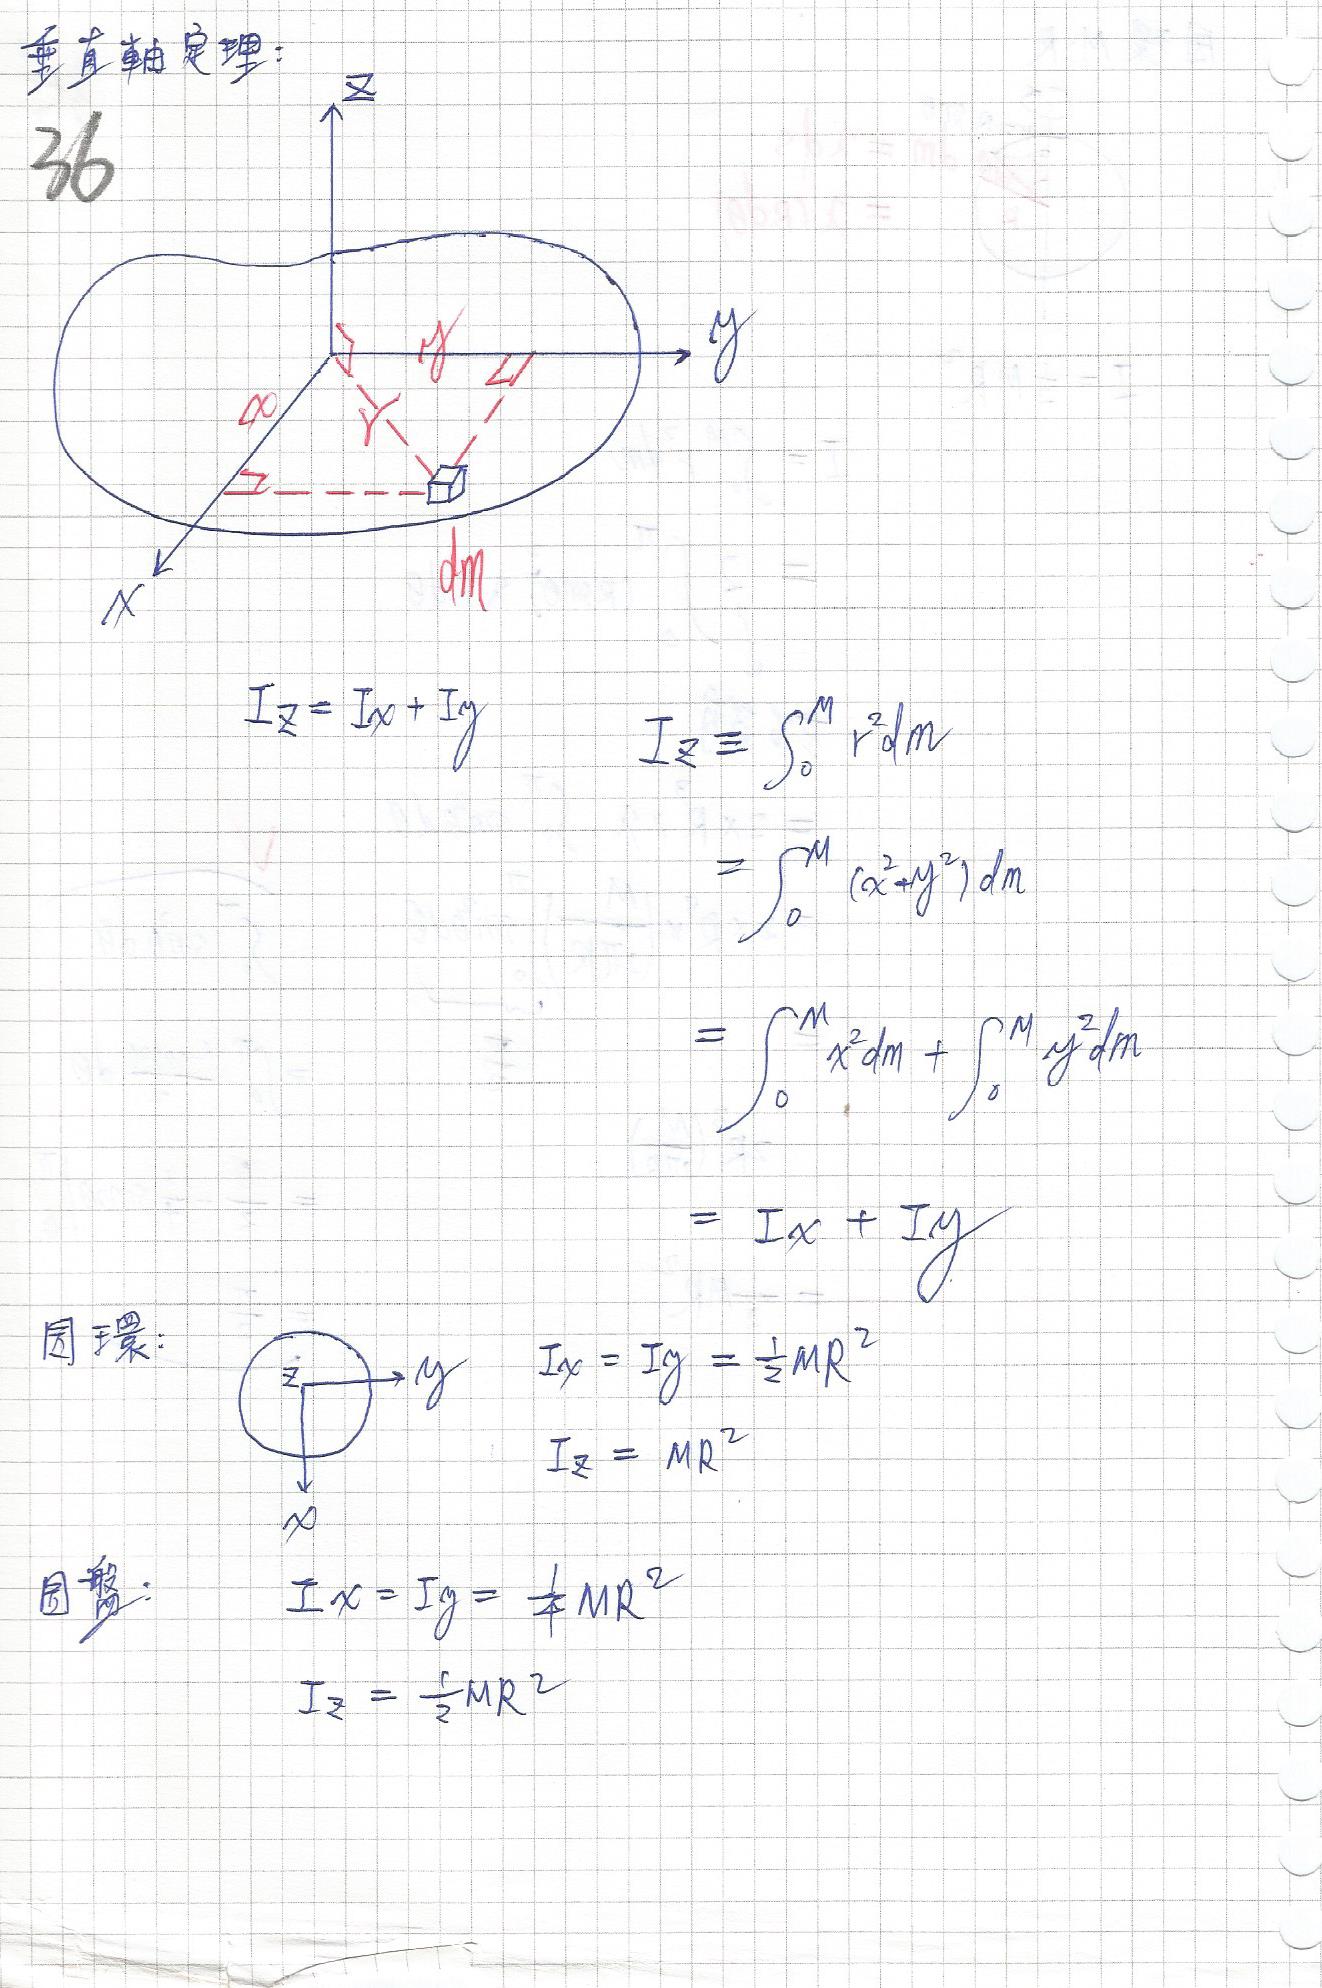 垂直軸定理:
36
z
y
y
x
r
dm
x
Iz = Ix + Iy
Iz ≡ ∫₀ᴹ r²dm
= ∫₀ᴹ (x²+y²)dm
= ∫₀ᴹ x²dm + ∫₀ᴹ y²dm
= Ix + Iy
圓環:
z
y
x
Ix = Iy = ½MR²
Iz = MR²
圓盤:
Ix = Iy = ¼MR²
Iz = ½MR²